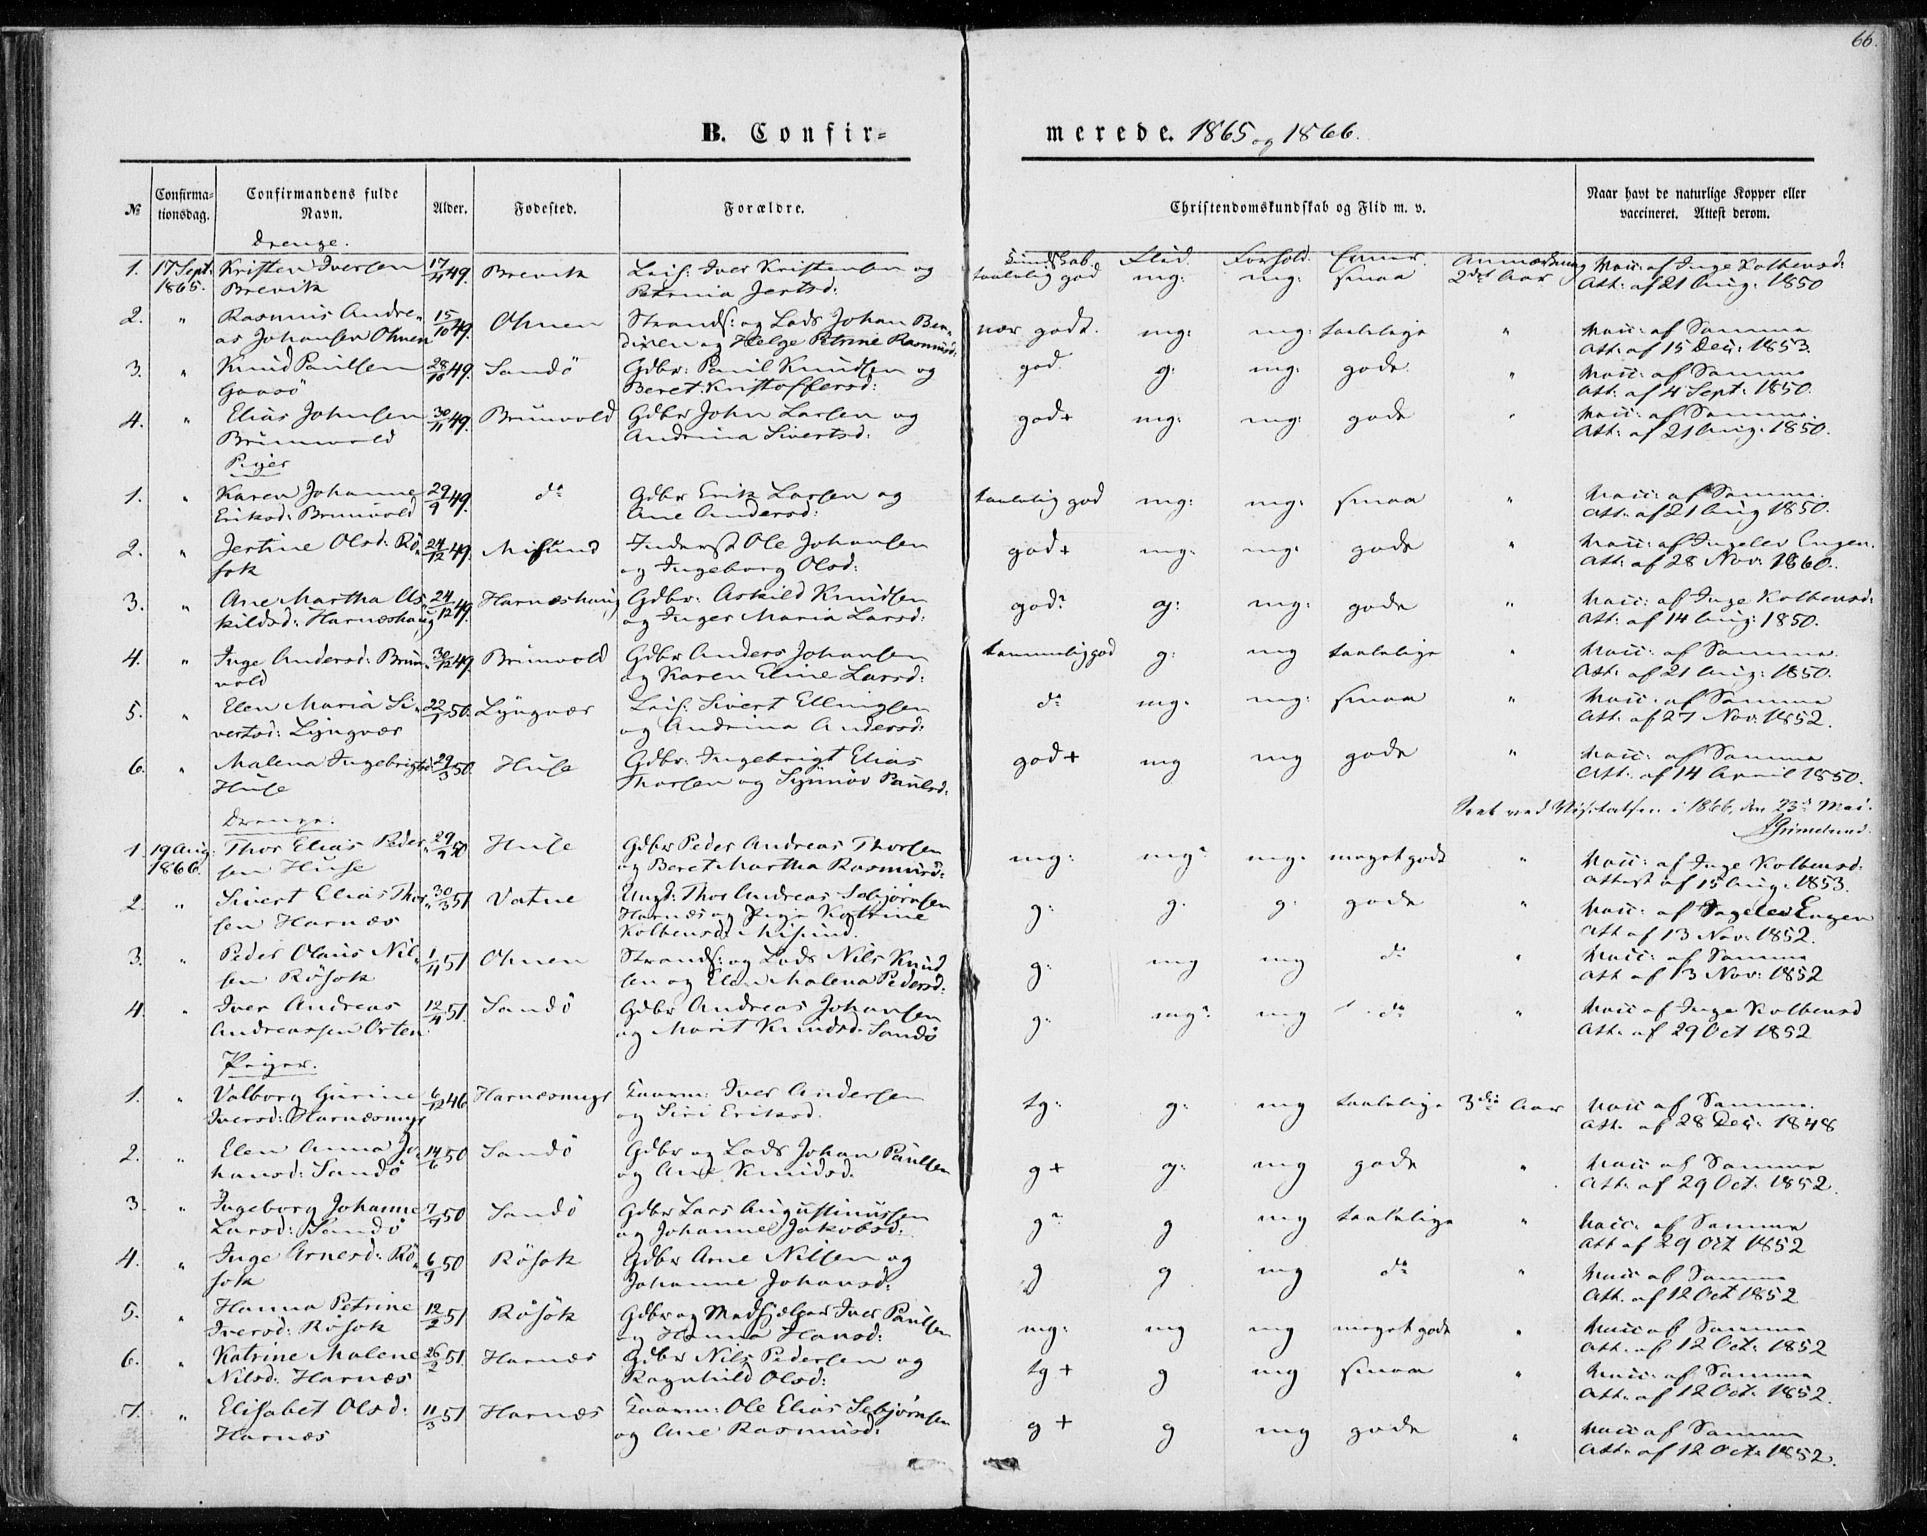 66.
B. Confir=
merede. 1865 og 1866.
№
Confirma-
tionsdag.
Confirmandens fulde
Navn.
Alder.
Fødested.
Forældre.
Christendomskundskab og Flid m. v.
Naar havt de naturlige Kopper eller
vaccineret. Attest derom.
Drenge.
Kundskab. Flid. Forhold. Evner. Anmærkning
1. 17 Sept: Kristen Iversen 17/11 49. Brevik Leif: Iver Kristensen og taalelig god mg: mg: smaa 2det Aar Vacc: af Inge Kolbensd:
1865. Brevik Petrnia Jertsd: Att: af 21 Aug: 1850
2. " Rasmus Andre- 15/10 49. Ohnen Strands: og Lods Johan Ben- nær godt. mg: mg: taalelige " Vacc: af Samme
as Johansen Ohnen dixen og Helge Petrine Rasmusd: Att: af 15 Dec: 1853.
3. " Knud Paulsen 28/10 49. Sandö Gdbr: Paul Knudsen og god g: mg: gode. " Vacc: af Samme
Gaasö Beret Kristoffersd: Att: af 4 Sept: 1850.
4. " Elias Johnsen 30/11 49. Brunvold Gdbr John Larsen og god+ mg: mg: gode " Vacc: af Samme.
Brunvold Andrina Sivertsd: Att: af 21 Aug: 1850.
Piger
1. " Karen Johanne 29/9 49. do Gdbr Erik Larsen og taalelig god mg: mg: smaa " Vacc: af Samme.
Eriksd: Brunvold Ane Andersd: Att: af 21 Aug 1850.
2. " Jertine Olsd: Rö- 24/12 49. Misund Inderst Ole Johansen god+ mg: mg: gode " Vacc: af Ingelev Engen.
sok og Ingeborg Olsd: Att: af 28 Nov: 1860.
3. " Ane Martha As- 24/12 49. Harnæshaug Gdbr: Askild Knudsen god? g: mg: gode " Vacc: af Inge Kolbensd:
kildsd: Harnæshaug og Inger Maria Larsd: Att: af 14 Aug: 1850.
4. " Inge Andersd: Brun- 30/12 49 Brunvold Gdbr Anders Johansen temmelig god g: mg taalelige " Vacc: af Samme.
vold og Karen Eline Larsd: Att: af 21 Aug: 1850.
5. " Elen Maria Si- 22/1 50. Lyngvær Leif. Sivert Ellingsen do mg: mg: smaa " Vacc: af Samme
vertsd: Lyngvær og Andrina Andersd: Att: af 27 Nov: 1852.
6. " Malena Ingebrigtsd: 29/3 50. Huse Gdbr: Ingebrigt Elias god+ mg mg gode " Vacc: af Samme
Huse Thorsen og Synnøv Paulsd: Att: af 14 April 1850.
Seet ved Visitatsen i 1866, den 23de Mai.
Grimelund.
Drenge.
1 19 Aug: Thor Elias Peder- 29/9 50 Huse Gdbr Peder Andreas Thorsen mg: mg? mg: meget gode " Vacc: af Inge Kolbensd:
1866. sen Huse og Beret Martha Rasmusd: Attest af 15 Aug: 1853.
2. " Sivert Elias Thor- 30/3 51 Vatne Ungk: Thor Andreas Sebjörnsen g: g: g: gode " Vacc: af Ingelev Engen
sen Harnæs Harnæs og Pige Katrine Att af 13 Nov: 1852.
Kolbensd: Misund.
3. " Peder Olaus Nil- 1/4 51 Ohnen Strands: og Lods Nils Knud- g: mg mg do " Vacc: af Samme
sen Rösok sen og Elen Malena Pedersd: Att af 13 Nov: 1852
4. " Iver Andreas 12/4 51. Sandö Gdbr Andreas Johansen g: mg? mg do " Vacc af Inge Kolbensd
Andreassen Orten. og Marit Knudsd: Sandö Att. af 29 Oct 1852
Piger.
1. " Valborg Gurine 6/12 46 Harnæsmyr Huusm: Iver Andersen tg: g: mg taalelige 3die Aar Vacc af Samme.
Iversd: Harnæsmyr og Siri Eriksd. Att. af 28 Dec: 1848
2. " Elen Anna Jo- 14/6 50 Sandö Gdbr og Lods Johan Paulsen g+ g: mg gode " Vacc af Samme
hansd: Sandö og Ane Knudsd. Att: af 29 Oct. 1852.
3. " Ingeborg Johanne 7/9 50 Sandö Gdbr Lars Augustinussen g? g mg taalelige " Vacc: af Samme
Larsd: Sandö og Johanne Jakobsd: Att af 29 Oct 1852
4. " Inge Arnesd: Rö- 6/9 50 Rösok Gdbr Arne Nilsen og g g mg do " Vacc af Samme
sok Johanne Johansd: Att. af 12 Oct 1852
5. " Hanna Petrine 12/2 51 Rösok Gdbr og Medhjelper Iver Paulsen mg: mg mg meget gode " Vacc af Samme
Iversd: Rösok og Hanna Hansd: Att. af 12 Oct. 1852
6. " Katrine Malene 26/2 51. Harnæs Gdbr Nils Pedersen og tg+ g mg smaa " Vacc: af Samme
Nilsd: Harnæs Ragnhild Olsd: Att. af 12 Oct. 1852.
7. " Elisabet Olsd: 11/3 51 Harnæs Huusm: Ole Elias Sebjörnsen g+ g mg gode " Vacc af Samme
Harnæs og Ane Rasmusd: Att: af 12 Oct. 1852.